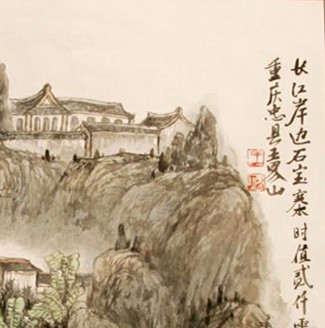 长江岸边石宝寨时值贰仟零
重庆忠县玉印山